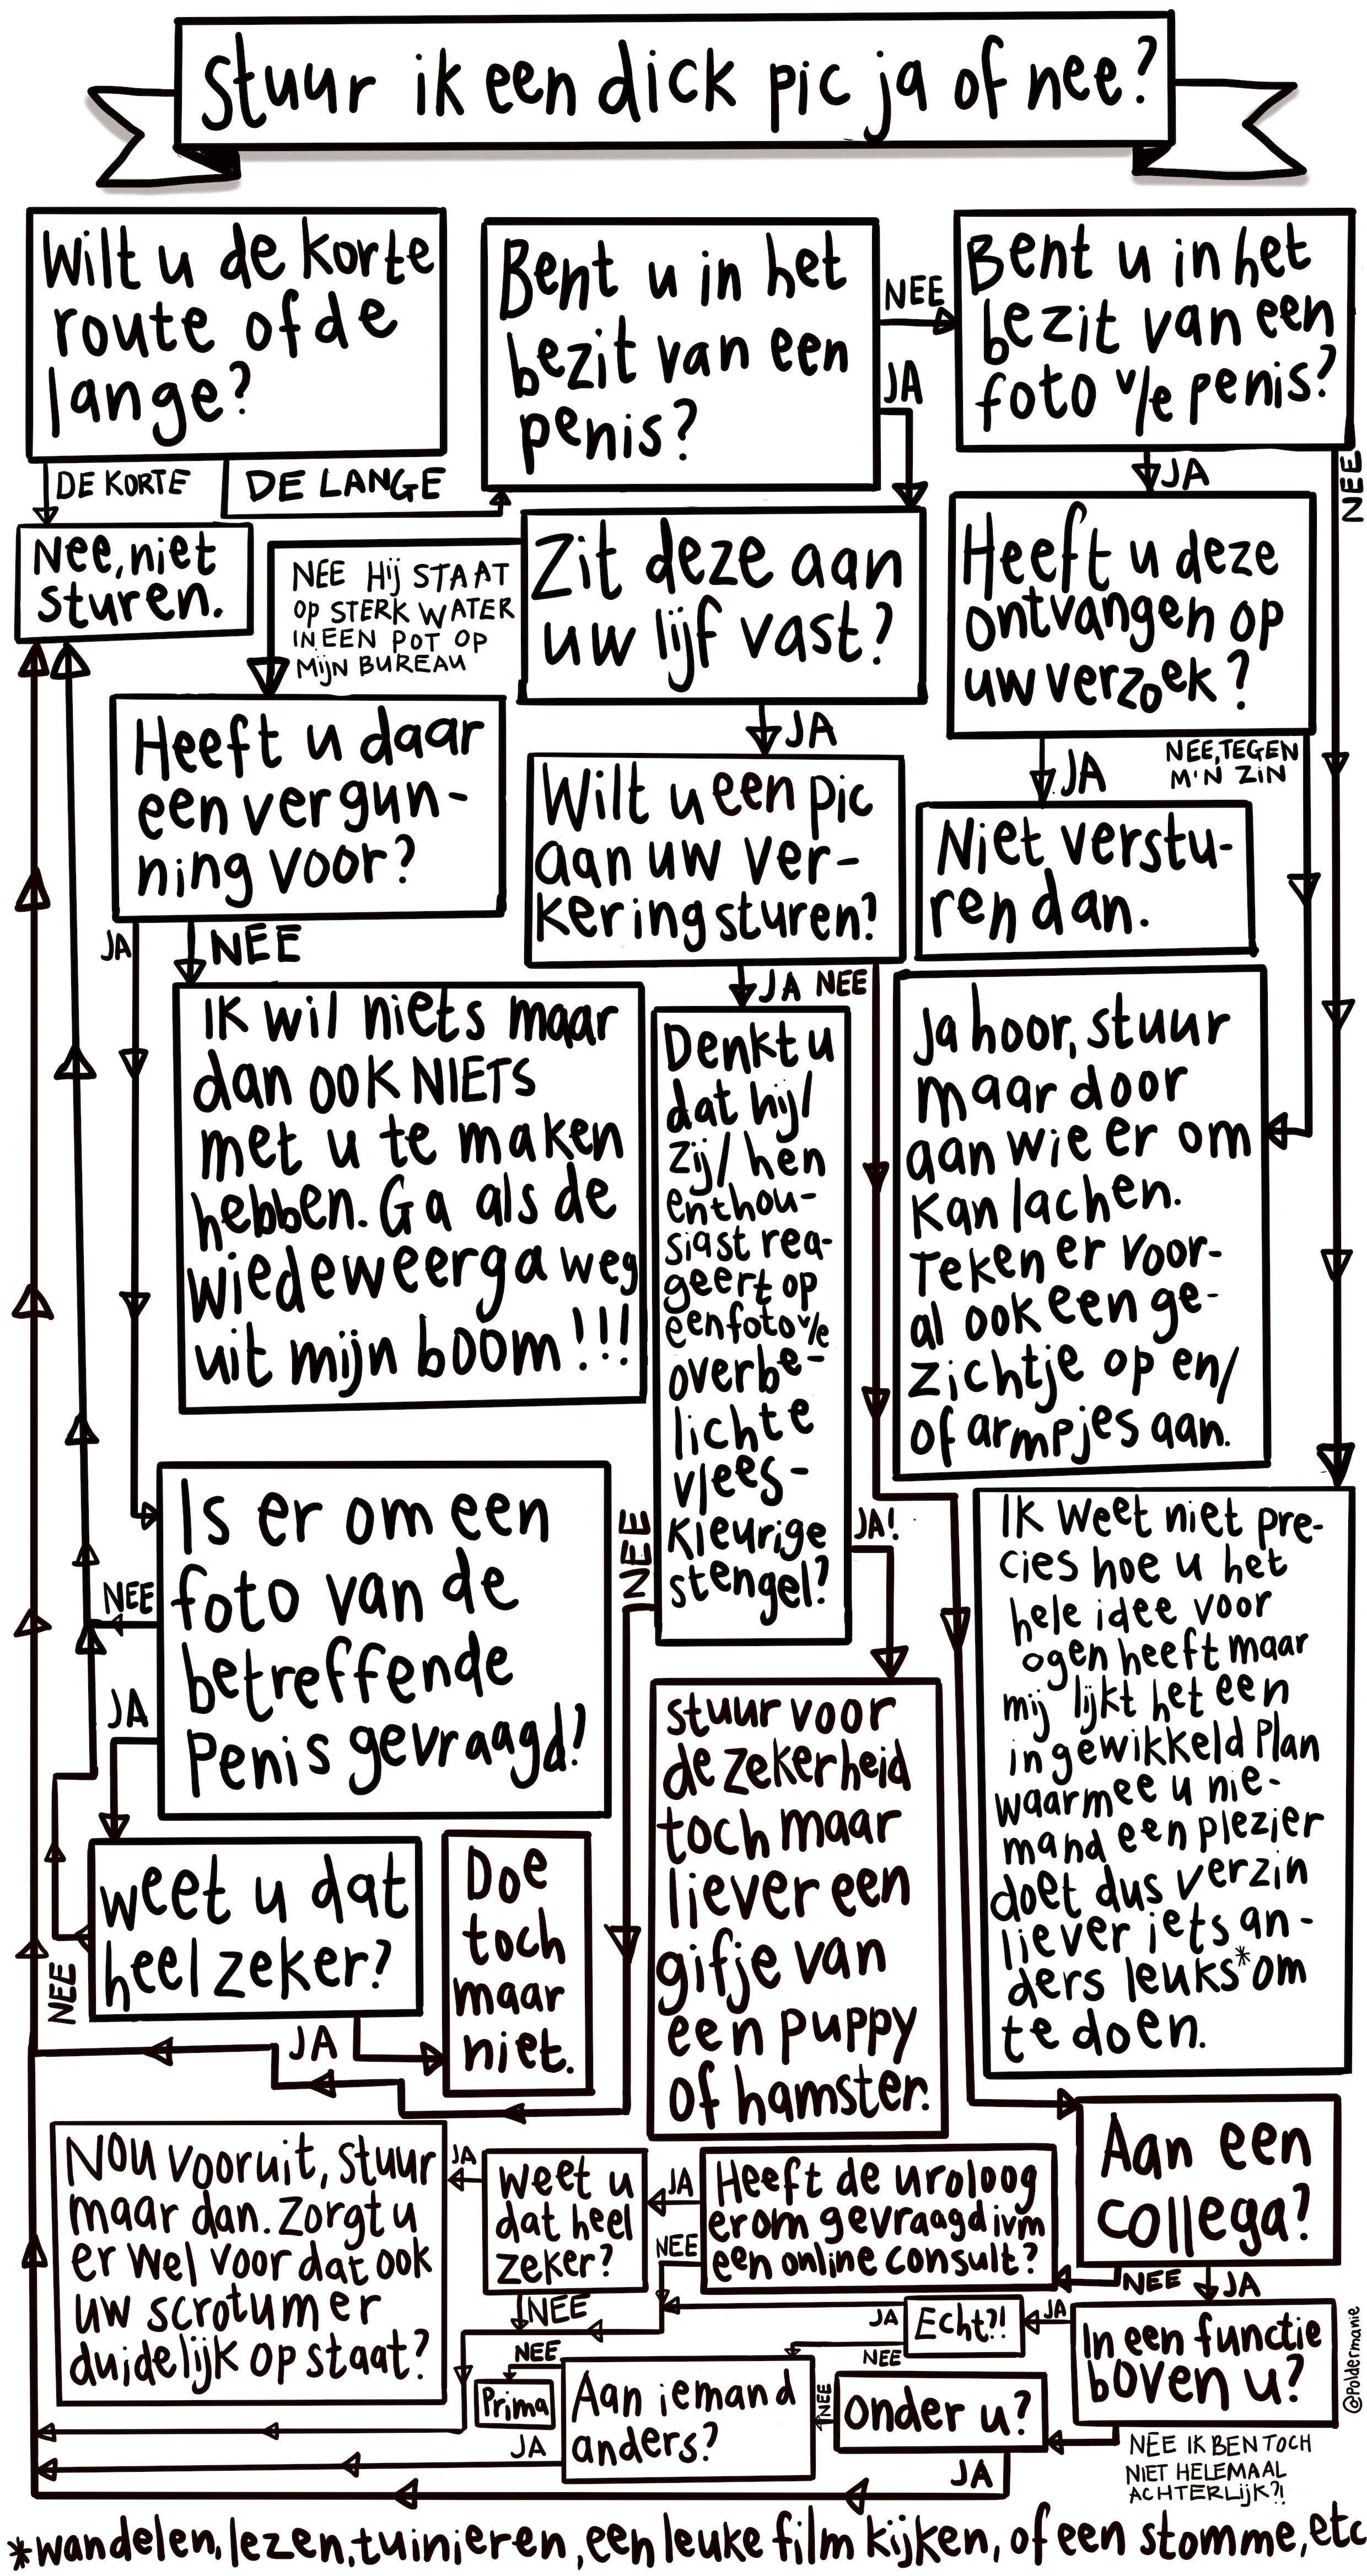 Stuur ik een dick pic ja of nee?
Wilt u de korte
route of de
lange?
DE KORTE
DE LANGE
Nee, niet
sturen.
Bent u in het
bezit van een
penis?
NEE
JA
Bent u in het
bezit van een
foto v/e penis?
JA
NEE
Zit deze aan
uw lijf vast?
NEE HIJ STAAT
OP STERK WATER
IN EEN POT OP
MIJN BUREAU
JA
Heeft u deze
ontvangen op
uw verzoek?
JA
NEE, TEGEN
M'N ZIN
Heeft u daar
een vergun-
ning voor?
JA
NEE
Wilt u een pic
aan uw ver-
kering sturen?
JA
NEE
Niet verstu-
ren dan.
Ik wil niets maar
dan ook NIETS
met u te maken
hebben. Ga als de
wiedeweerga weg
uit mijn boom!!!
Denkt u
dat hij/
zij/hen
enthou-
siast rea-
geert op
een foto v/e
overbe-
lichte
vlees-
kleurige
stengel?
NEE
JA!
Ja hoor, stuur
maar door
aan wie er om
kan lachen.
Teken er voor-
al ook een ge-
zichtje op en/
of armpjes aan.
Is er om een
foto van de
betreffende
Penis gevraagd?
NEE
JA
Ik weet niet pre-
cies hoe u het
hele idee voor
ogen heeft maar
mij lijkt het een
ingewikkeld plan
waarmee u nie-
mand een plezier
doet dus verzin
liever iets an-
ders leuks* om
te doen.
stuur voor
de zekerheid
toch maar
liever een
gifje van
een puppy
of hamster.
weet u dat
heel zeker?
NEE
JA
Doe
toch
maar
niet.
Aan een
collega?
NEE
JA
Nou vooruit, stuur
maar dan. Zorgt u
er wel voor dat ook
uw scrotum er
duidelijk op staat?
JA
weet u
dat heel
zeker?
NEE
JA
NEE
Heeft de uroloog
erom gevraagd ivm
een online consult?
Echt?!
JA
NEE
JA
In een functie
boven u?
NEE IK BEN TOCH
NIET HELEMAAL
ACHTERLIJK?!
onder u?
NEE
JA
Aan iemand
anders?
NEE
JA
Prima
@Poldermanie
*wandelen, lezen, tuinieren, een leuke film kijken, of een stomme, etc